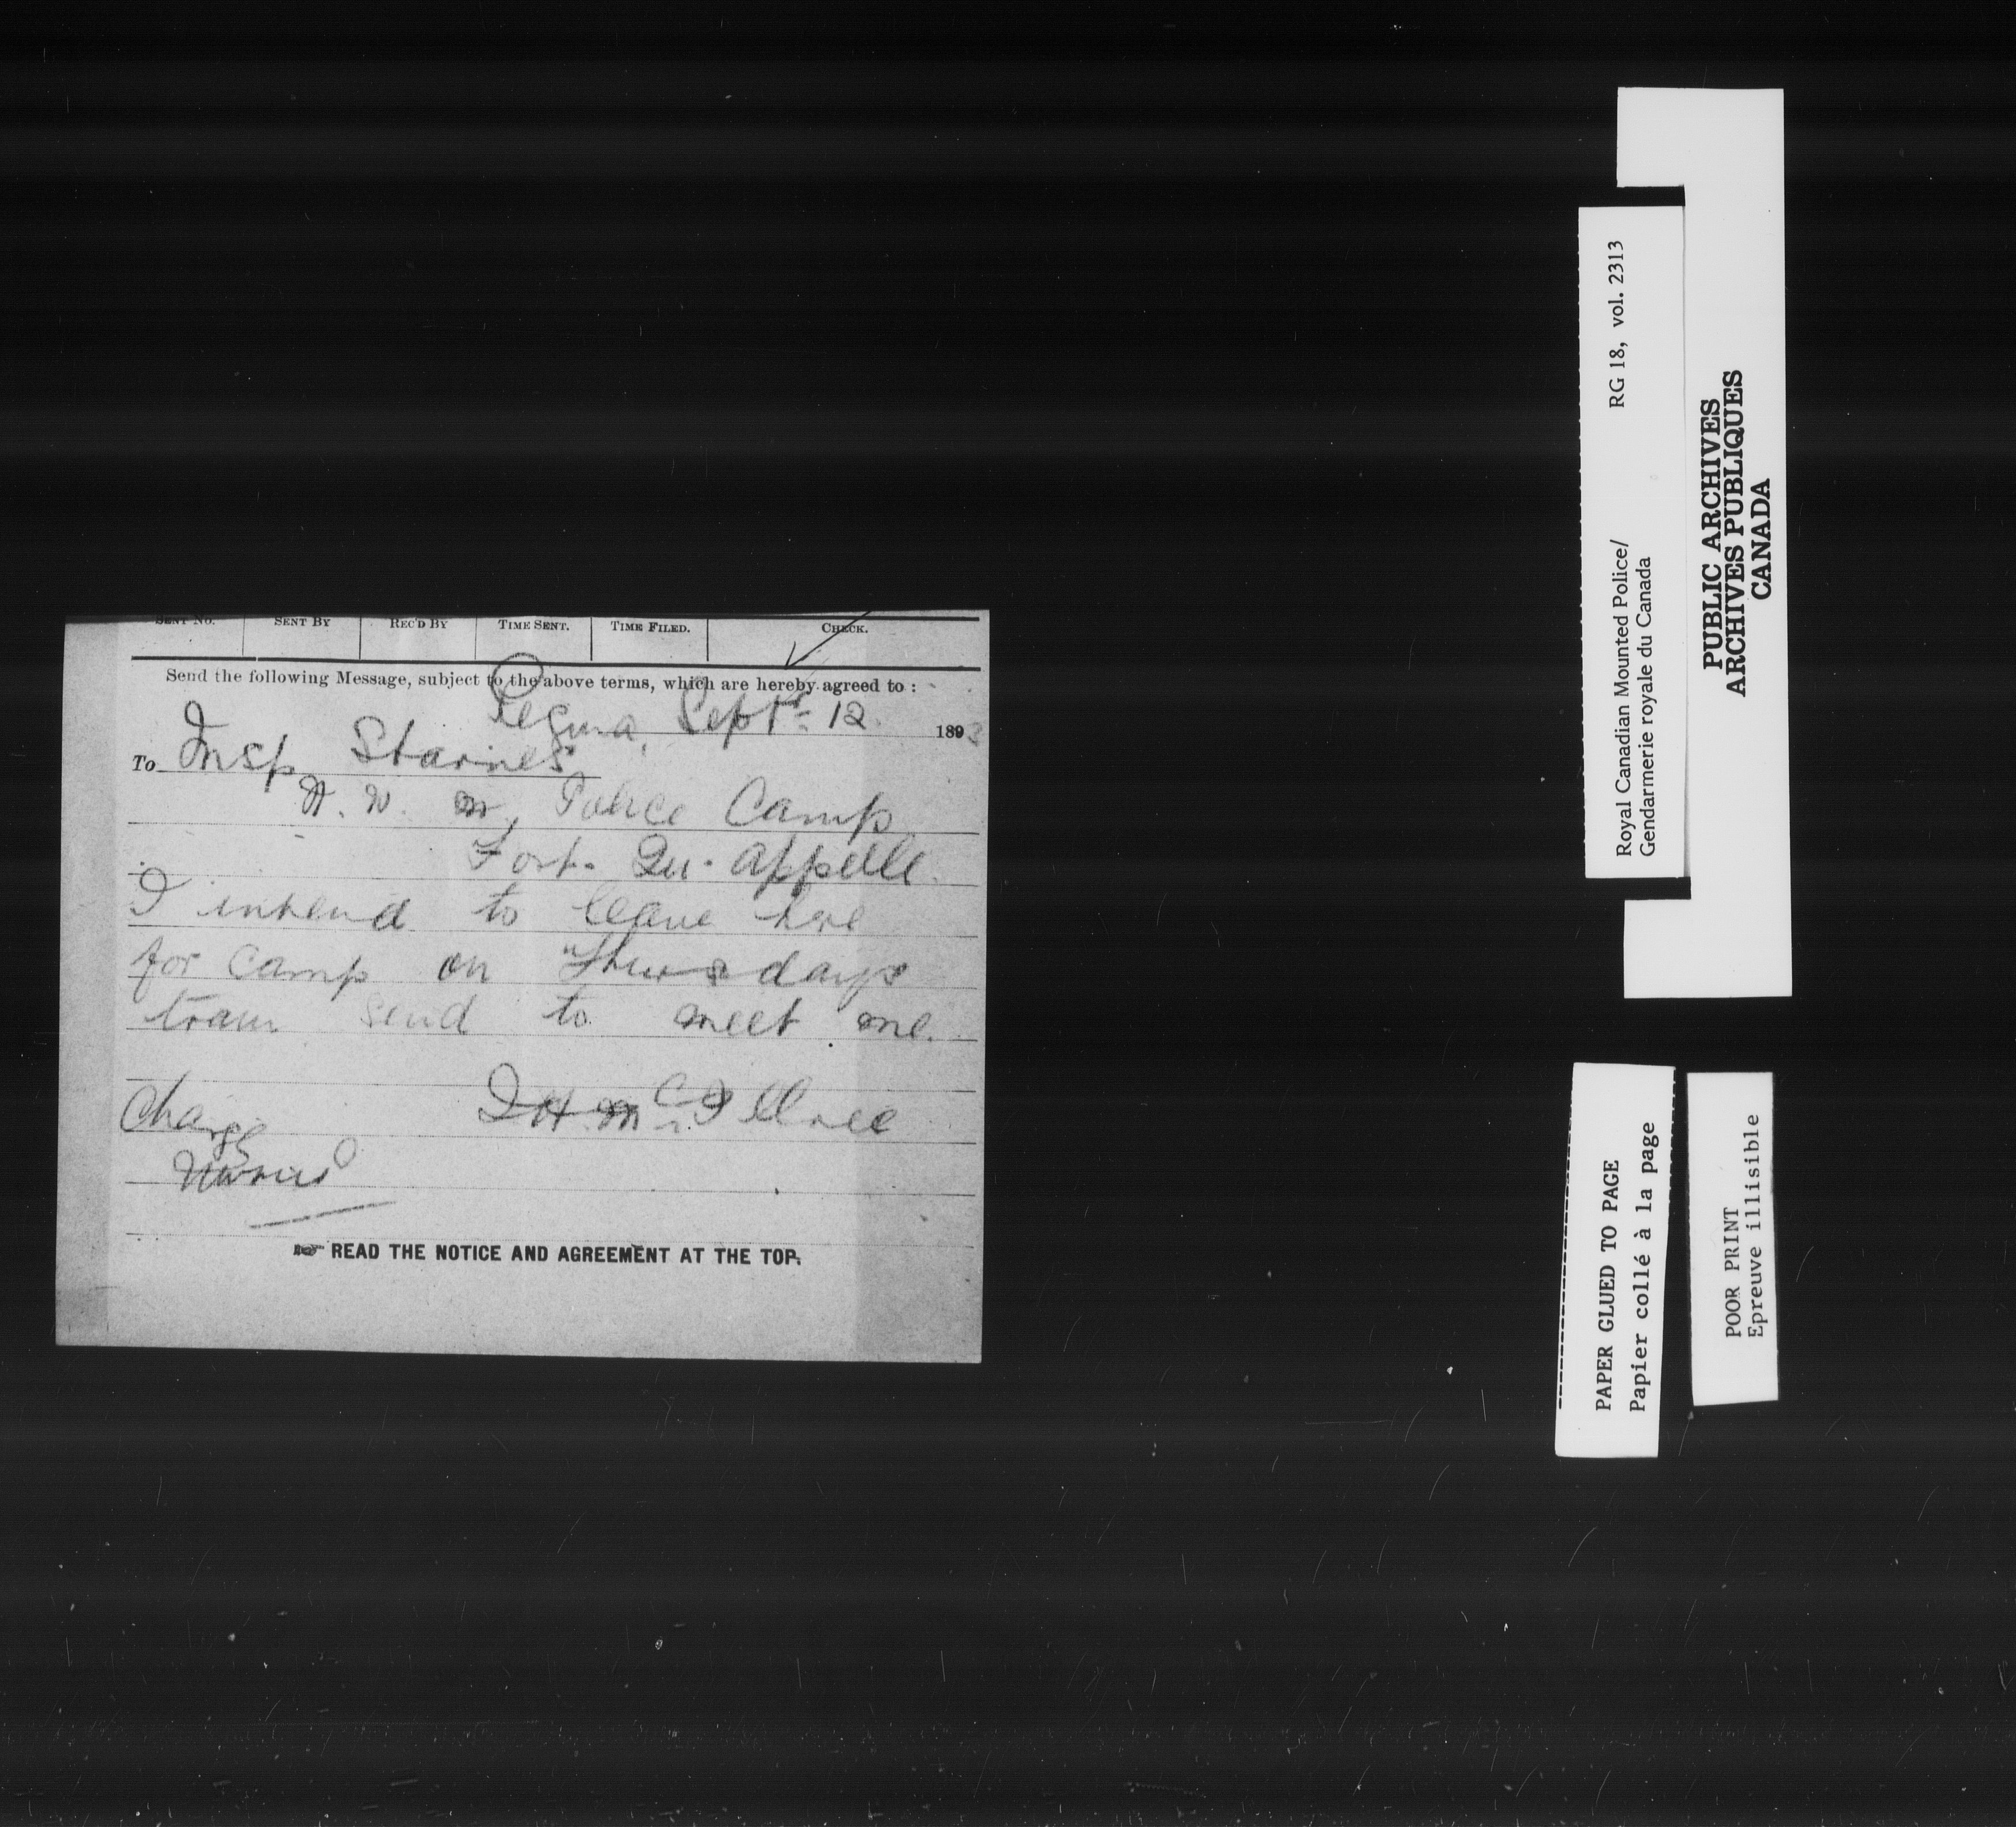 SENT NO. SENT BY REC'D BY TIME SENT. TIME FILED. CHECK.
Send the following Message, subject to the above terms, which are hereby agreed to :
Regina, Sept. 12 1893
To Insp Starnes
N. W. M. Police Camp
Fort. Qu. Appelle.
I intend to leave here
for Camp on Thursdays
train send to meet me.
J H McIllree
Charge
READ THE NOTICE AND AGREEMENT AT THE TOP.
Royal Canadian Mounted Police/ RG 18, vol. 2313
Gendarmerie royale du Canada
PUBLIC ARCHIVES
ARCHIVES PUBLIQUES
CANADA
PAPER GLUED TO PAGE
Papier collé à la page
POOR PRINT
Epreuve illisible